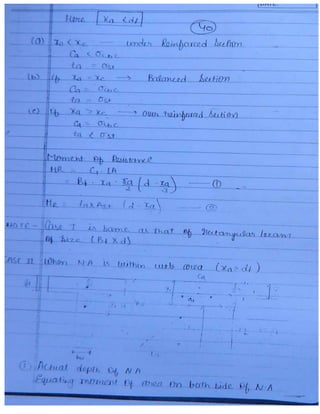 Here xa < df
40
(a) xa < xc under Reinforced Section
Ca < σcbc
ta = σst
(b) If xa = xc → Balanced Section
Ca = σcbc
ta = σst
(c) If xa > xc → over reinforced Section
Ca = σcbc
ta < σst
Moment of Resistance
MR = C1 LA
= Bf . xa . Ca/2 (d - xa/3) — ①
MR = ta x Ast (d - xa/3) — ②
NOTE - Case I is same as that of Rectangular beam
of size (Bf x d)
Case II When N.A is within web area (xa > df)
Ca
① Actual depth of NA
Equating moment of area on both side of N.A